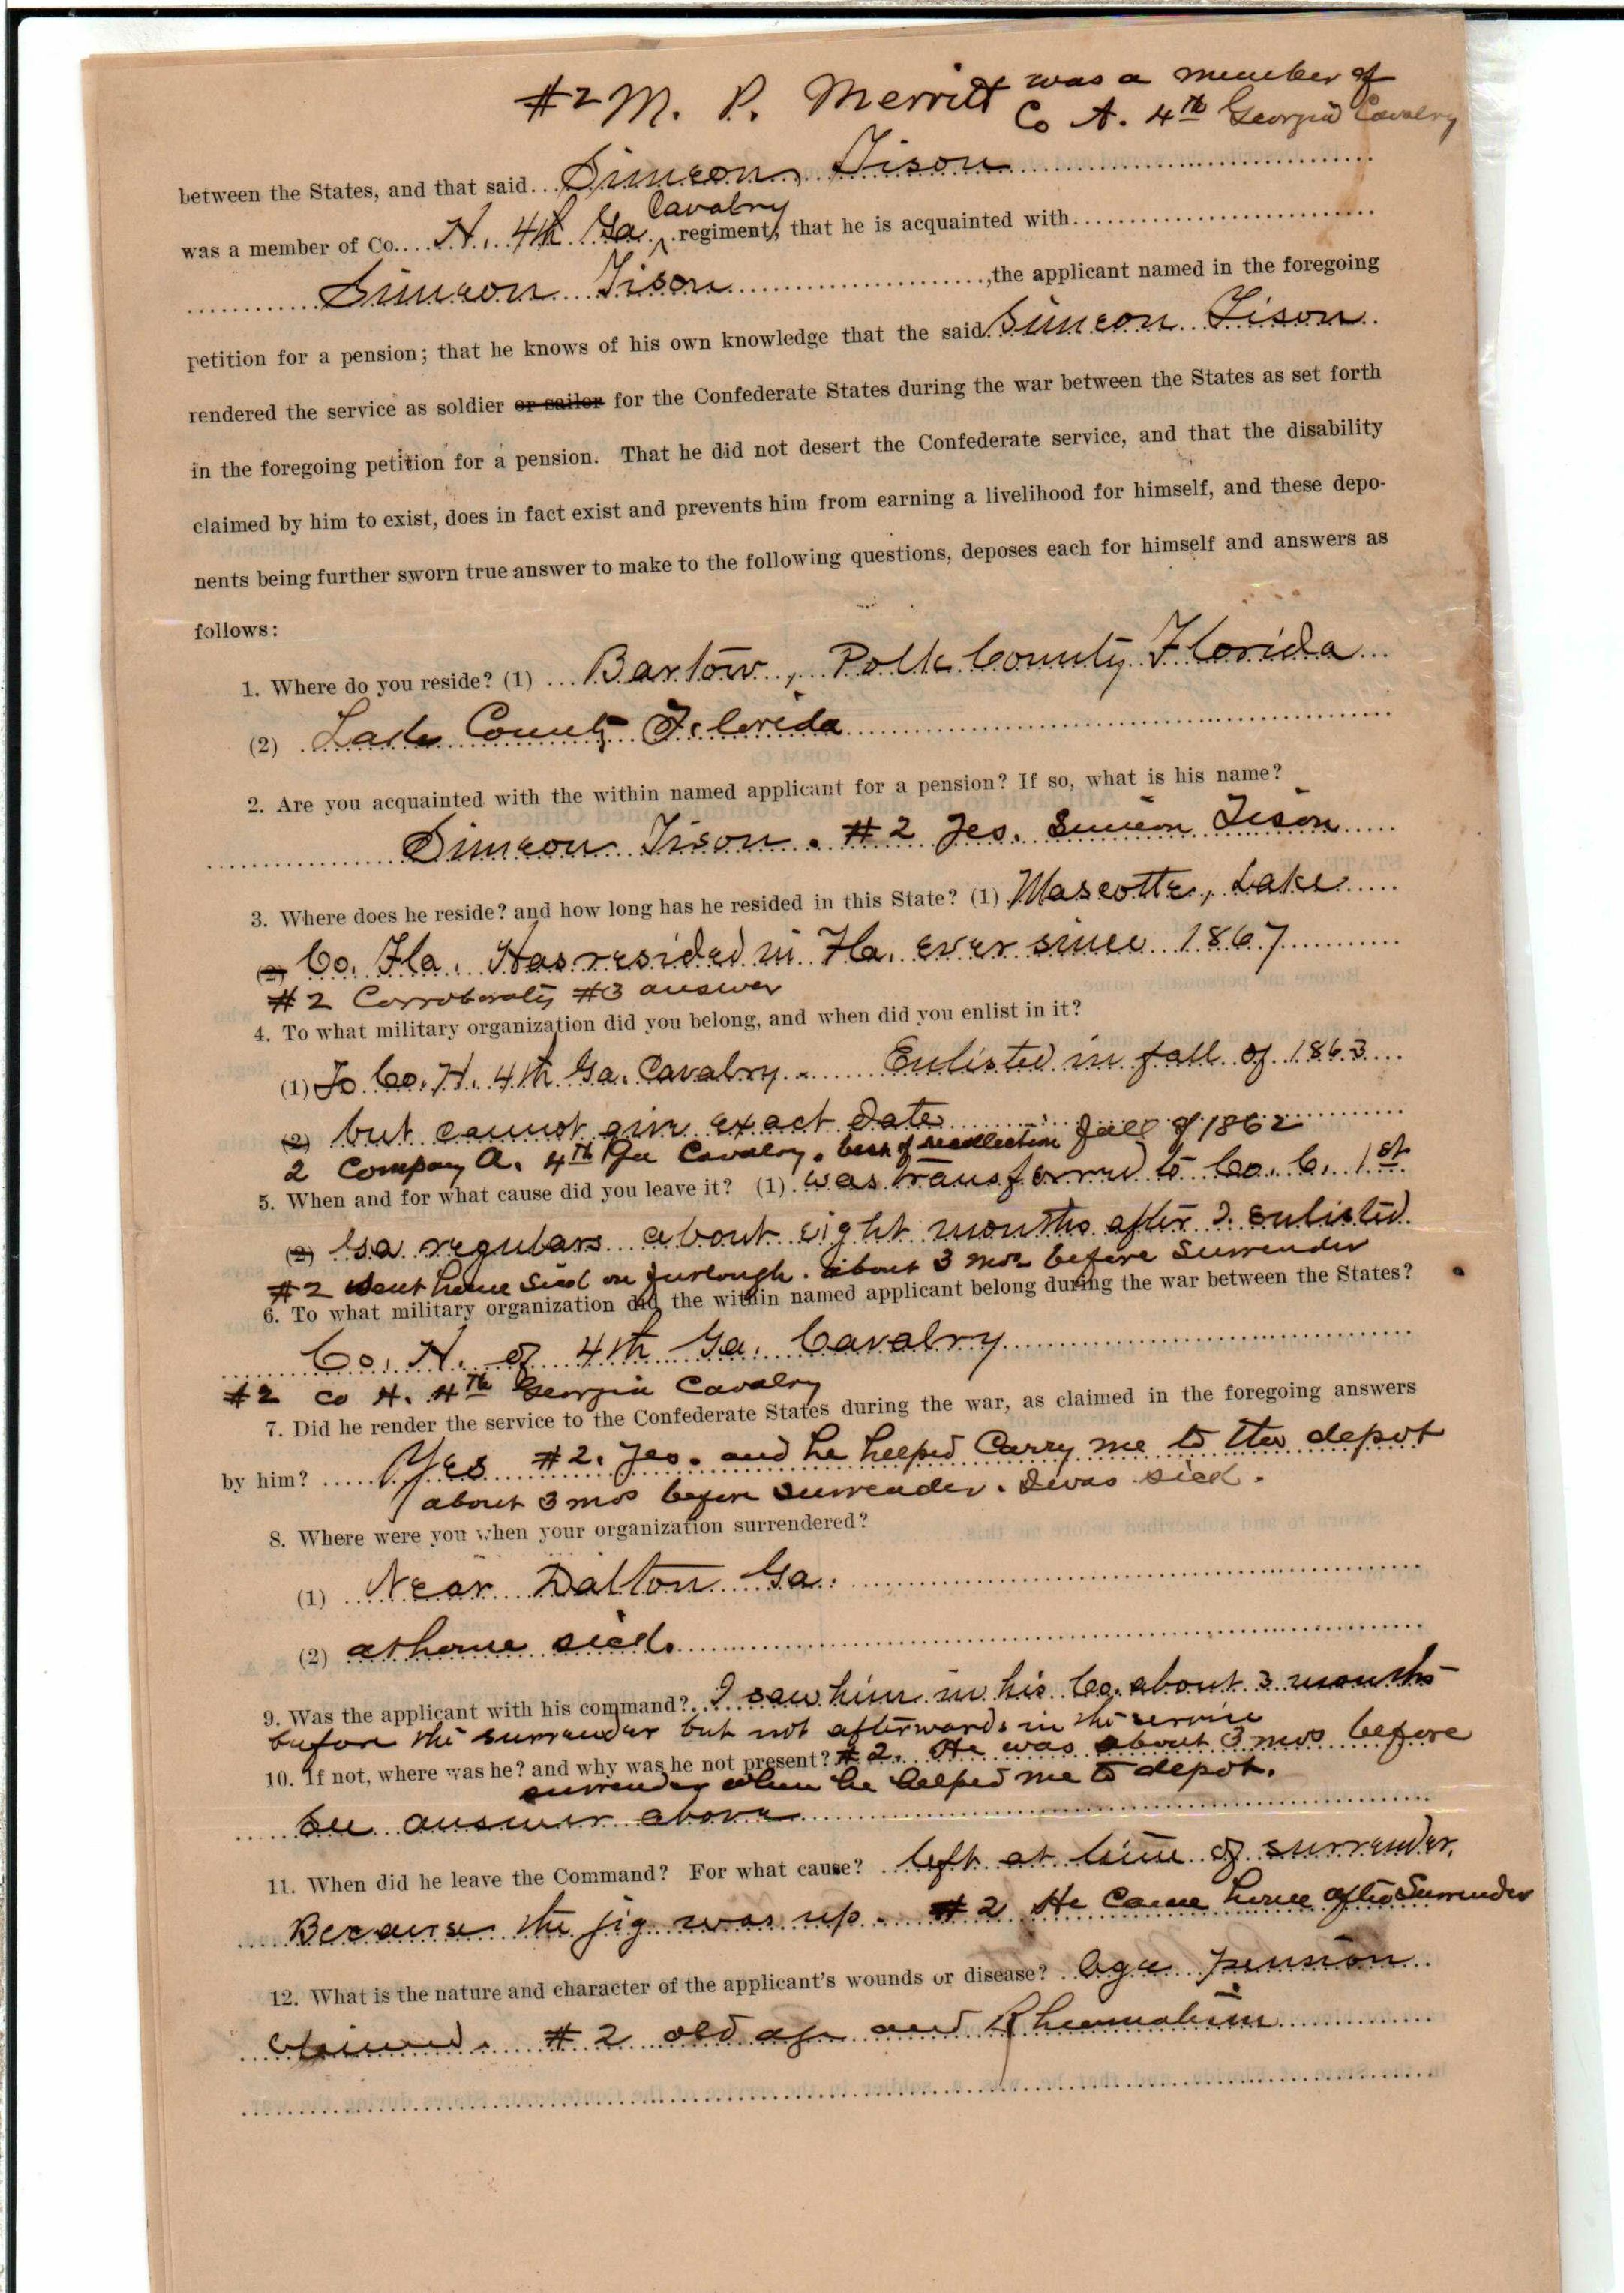 #2 M. P. Merritt was a member of
Co A. 4th Georgia Cavalry
between the States, and that said Simeon Tison
Cavalry
was a member of Co. H. 4th Ga regiment, that he is acquainted with
Simeon Tison, the applicant named in the foregoing
petition for a pension; that he knows of his own knowledge that the said Simeon Tison
rendered the service as soldier or sailor for the Confederate States during the war between the States as set forth
in the foregoing petition for a pension. That he did not desert the Confederate service, and that the disability
claimed by him to exist, does in fact exist and prevents him from earning a livelihood for himself, and these depo-
nents being further sworn true answer to make to the following questions, deposes each for himself and answers as
follows:
1. Where do you reside? (1) Bartow, Polk County Florida
(2) Lake County Florida
2. Are you acquainted with the within named applicant for a pension? If so, what is his name?
Simeon Tison. #2 Yes. Simeon Tison
3. Where does he reside? and how long has he resided in this State? (1) Mascotte, Lake
(2) Co. Fla. Has resided in Fla. ever since 1867
#2 Corroborates #3 answer
4. To what military organization did you belong, and when did you enlist in it?
(1) To Co. H. 4th Ga. Cavalry. Enlisted in fall of 1863
(2) but cannot give exact date
2 Company A. 4th Ga Cavalry. best of recollection fall of 1862
5. When and for what cause did you leave it? (1) was transferred to Co. C. 1st
(2) Ga regulars about eight months after I enlisted
#2 sent home sick on furlough. about 3 mos before Surrender
6. To what military organization did the within named applicant belong during the war between the States?
Co. H. of 4th Ga. Cavalry
#2 Co H. 4th Georgia Cavalry
7. Did he render the service to the Confederate States during the war, as claimed in the foregoing answers
by him? Yes #2. Yes. and he helped Carry me to the depot
about 3 mos before surrender. I was sick.
8. Where were you when your organization surrendered?
(1) Near Dalton Ga.
(2) at home sick.
9. Was the applicant with his command? I saw him in his Co. about 3 months
before the surrender but not afterwards in the service
10. If not, where was he? and why was he not present? #2. He was about 3 mos before
surrender when he helped me to depot.
See answer above
11. When did he leave the Command? For what cause? left at time of surrender.
Because the jig was up. #2 He Came home after Surrender
12. What is the nature and character of the applicant's wounds or disease? Age pension
claimed. #2 old age and Rheumatism